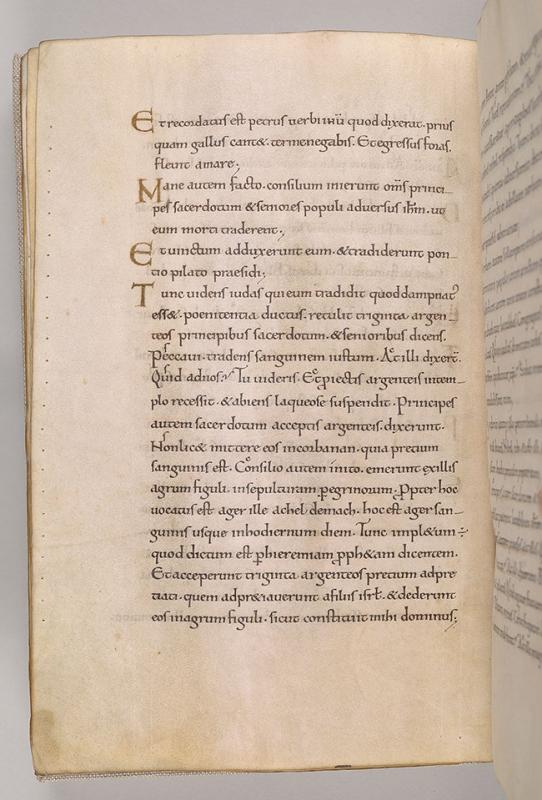 Et recordatus est petrus verbi ihu quod dixerat. prius
quam gallus cant&. ter me negabis. Et egressus foras.
flevit amare;
Mane autem facto. consilium inierunt oms princi
pes sacerdotum & seniores populi adversus ihm. ut
eum morti traderent;
Et vinctum adduxerunt eum. & tradiderunt pon
tio pilato praesidi;
Tunc videns iudas qui eum tradidit quod dampnatus
ess&. poenitentia ductus. retulit triginta argen
teos principibus sacerdotum. & senioribus dicens.
Peccavi. tradens sanguinem iustum. At illi dixert.
Quid ad nos? Tu videris. Et piectis argenteis in tem
plo recessit. & abiens laqueo se suspendit. Principes
autem sacerdotum acceptis argenteis. dixerunt.
Non lic& mittere eos in corbanan. quia pretium
sanguinis est. Consilio autem inito. emerunt ex illis
agrum figuli. in sepulturam pegrinorum. Ppter hoc
vocatus est ager ille acheldemach. hoc est ager san
guinis usque in hodiernum diem. Tunc impl&um
quod dictum est p hieremiam pph&am dicentem.
Et acceperunt triginta argenteos pretium adpre
tiati. quem adpr&iaverunt a filiis isrl. & dederunt
eos in agrum figuli. sicut constituit mihi dominus;